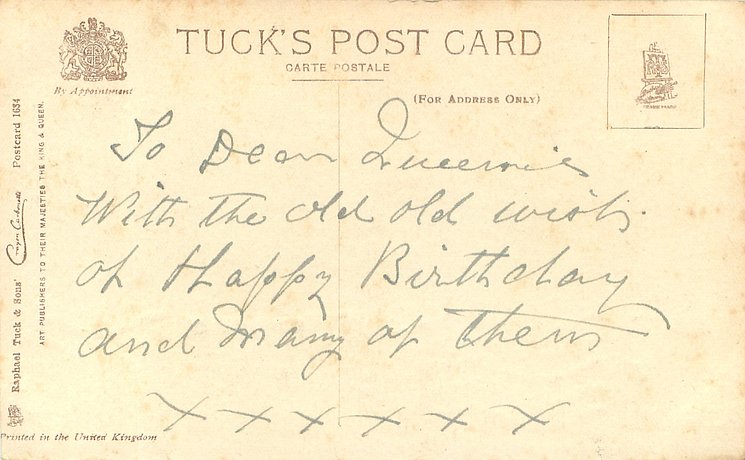 TUCK'S POST CARD
CARTE POSTALE
By Appointment
(FOR ADDRESS ONLY)
To Dear
With the old old wish
of Happy Birthday
and Many of Them
x x x x x x
Raphael Tuck & Sons' Postcard 1634
ART PUBLISHERS TO THEIR MAJESTIES THE KING & QUEEN.
Printed in the United Kingdom